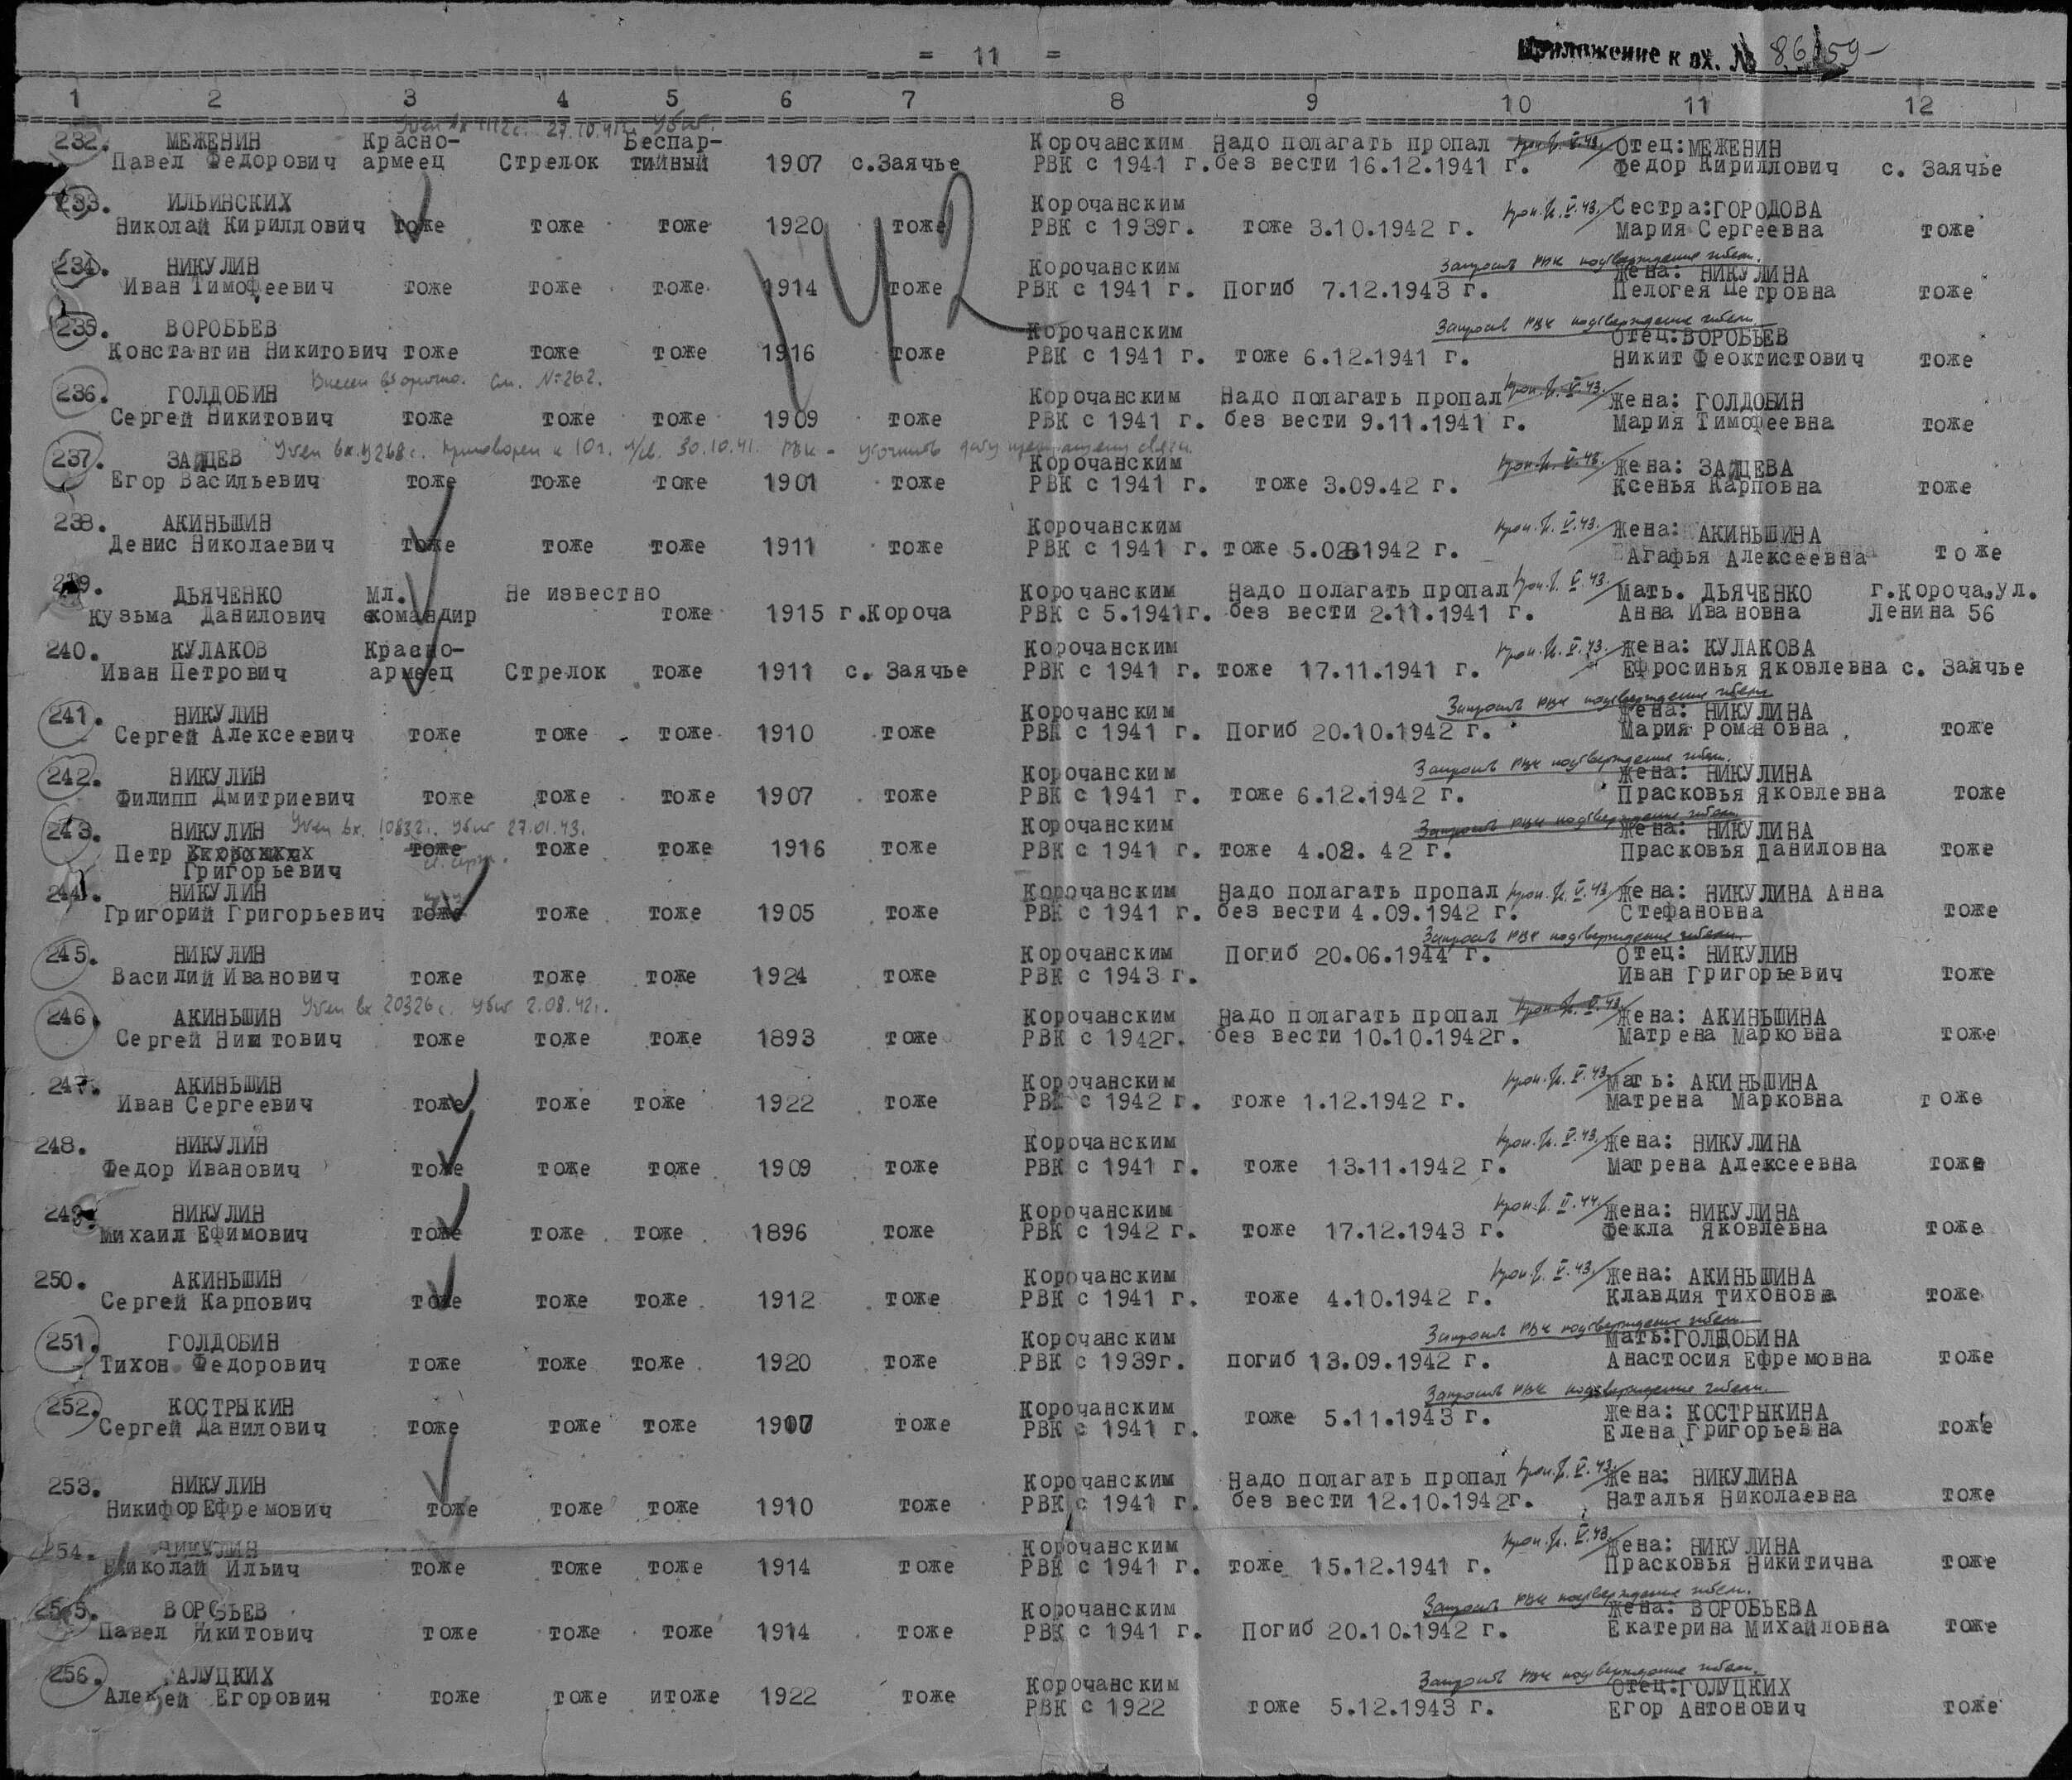 = 11 =
Приложение к вх. № 86159
1 2 3 4 5 6 7 8 9 10 11 12
Учен вх 27.10.41г. убит.
232. МЕЖЕНИН Красно- Беспар- Корочанским Надо полагать пропал Отец:МЕЖЕНИН
Павел Федорович армеец Стрелок тийный 1907 с.Заячье РВК с 1941 г. без вести 16.12.1941 г. Федор Кириллович с. Заячье
42
233. ИЛЬИНСКИХ Корочанским V.43. Сестра:ГОРОДОВА
Николай Кириллович тоже тоже тоже 1920 тоже РВК с 1939г. тоже 3.10.1942 г. Мария Сергеевна тоже
Запросить РВК подтверждение гибели.
234. НИКУЛИН Корочанским Жена: НИКУЛИНА
Иван Тимофеевич тоже тоже тоже 1914 тоже РВК с 1941 г. Погиб 7.12.1943 г. Пелогея Петровна тоже
Запросить РВК подтверждение гибели.
235. ВОРОБЬЕВ Корочанским Отец:ВОРОБЬЕВ
Константин Никитович тоже тоже тоже 1916 тоже РВК с 1941 г. тоже 6.12.1941 г. Никит Феоктистович тоже
Внесен вторично. См. №262.
236. ГОЛДОБИН Корочанским Надо полагать пропал V.43. Жена: ГОЛДОБИН
Сергей Никитович тоже тоже тоже 1909 тоже РВК с 1941 г. без вести 9.11.1941 г. Мария Тимофеевна тоже
Учен вх. 9268с. приговорен к 10г. 30.10.41. РВК - уточнить дату прекращения связи.
237. ЗАЙЦЕВ Корочанским Жена: ЗАЙЦЕВА
Егор Васильевич тоже тоже тоже 1901 тоже РВК с 1941 г. тоже 3.09.42 г. Ксенья Карповна тоже
238. АКИНЬШИН Корочанским V.43. Жена: АКИНЬШИНА
Денис Николаевич тоже тоже тоже 1911 тоже РВК с 1941 г. тоже 5.0281942 г. Агафья Алексеевна тоже
239. ДЬЯЧЕНКО Мл. Не известно Корочанским Надо полагать пропал V.43. Мать. ДЬЯЧЕНКО г.Короча,ул.
Кузьма Данилович командир тоже 1915 г.Короча РВК с 5.1941г. без вести 2.11.1941 г. Анна Ивановна Ленина 56
240. КУЛАКОВ Красно- Корочанским V.43. Жена: КУЛАКОВА
Иван Петрович армеец Стрелок тоже 1911 с. Заячье РВК с 1941 г. тоже 17.11.1941 г. Ефросинья Яковлевна с. Заячье
Запросить РВК подтверждение гибели
241. НИКУЛИН Корочанским Жена: НИКУЛИНА
Сергей Алексеевич тоже тоже тоже 1910 тоже РВК с 1941 г. Погиб 20.10.1942 г. Мария Романовна тоже
Запросить РВК подтверждение гибели.
242. НИКУЛИН Корочанским Жена: НИКУЛИНА
Филипп Дмитриевич тоже тоже тоже 1907 тоже РВК с 1941 г. тоже 6.12.1942 г. Прасковья Яковлевна тоже
Запросить РВК подтверждение гибели
243. НИКУЛИН Учен вх. 10832г. убит 27.01.43. Корочанским Жена: НИКУЛИНА
Петр тоже тоже тоже 1916 тоже РВК с 1941 г. тоже 4.08. 42 г. Прасковья Даниловна тоже
Григорьевич
244. НИКУЛИН Корочанским Надо полагать пропал V.43. Жена: НИКУЛИНА Анна
Григорий Григорьевич тоже тоже тоже 1905 тоже РВК с 1941 г. без вести 4.09.1942 г. Стефановна тоже
Запросить РВК подтверждение гибели
245. НИКУЛИН Корочанским Погиб 20.06.1944 г. Отец: НИКУЛИН
Василий Иванович тоже тоже тоже 1924 тоже РВК с 1943 г. Иван Григорьевич тоже
Учен вх 20326с. убит 2.08.42г.
246. АКИНЬШИН Корочанским Надо полагать пропал V.43. Жена: АКИНЬШИНА
Сергей Никитович тоже тоже тоже 1893 тоже РВК с 1942г. без вести 10.10.1942г. Матрена Марковна тоже
247. АКИНЬШИН Корочанским V.43. Мать: АКИНЬШИНА
Иван Сергеевич тоже тоже тоже 1922 тоже РВК с 1942 г. тоже 1.12.1942 г. Матрена Марковна тоже
248. НИКУЛИН Корочанским V.43. Жена: НИКУЛИНА
Федор Иванович тоже тоже тоже 1909 тоже РВК с 1941 г. тоже 13.11.1942 г. Матрена Алексеевна тоже
249. НИКУЛИН Корочанским Жена: НИКУЛИНА
Михаил Ефимович тоже тоже тоже 1896 тоже РВК с 1942 г. тоже 17.12.1943 г. Фекла Яковлевна тоже
250. АКИНЬШИН Корочанским V.43. Жена: АКИНЬШИНА
Сергей Карпович тоже тоже тоже 1912 тоже РВК с 1941 г. тоже 4.10.1942 г. Клавдия Тихоновна тоже
Запросить РВК подтверждение гибели
251. ГОЛДОБИН Корочанским Мать:ГОЛДОБИНА
Тихон Федорович тоже тоже тоже 1920 тоже РВК с 1939г. погиб 13.09.1942 г. Анастосия Ефремовна тоже
Запросить РВК подтверждение гибели.
252. КОСТРЫКИН Корочанским тоже 5.11.1943 г. Жена: КОСТРЫКИНА
Сергей Данилович тоже тоже тоже 1907 тоже РВК с 1941 г. Елена Григорьевна тоже
253. НИКУЛИН Корочанским Надо полагать пропал V.43. Жена: НИКУЛИНА
Никифор Ефремович тоже тоже тоже 1910 тоже РВК с 1941 г. без вести 12.10.1942г. Наталья Николаевна тоже
254. НИКУЛИН Корочанским V.43. Жена: НИКУЛИНА
Николай Ильич тоже тоже тоже 1914 тоже РВК с 1941 г. тоже 15.12.1941 г. Прасковья Никитична тоже
Запросить РВК подтверждение гибели.
255. ВОРОБЬЕВ Корочанским Жена: ВОРОБЬЕВА
Павел Никитович тоже тоже тоже 1914 тоже РВК с 1941 г. Погиб 20.10.1942 г. Екатерина Михайловна тоже
Запросить РВК подтверждение гибели.
256. ГАЛУЦКИХ Корочанским Отец:ГОЛУЦКИХ
Алексей Егорович тоже тоже итоже 1922 тоже РВК с 1922 тоже 5.12.1943 г. Егор Антонович тоже